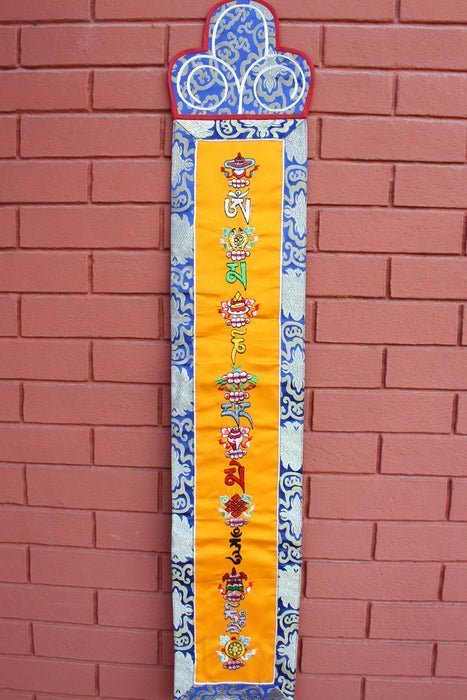 ཨོཾ
མ
ཎི
པད
མེ
ཧཱུྃ